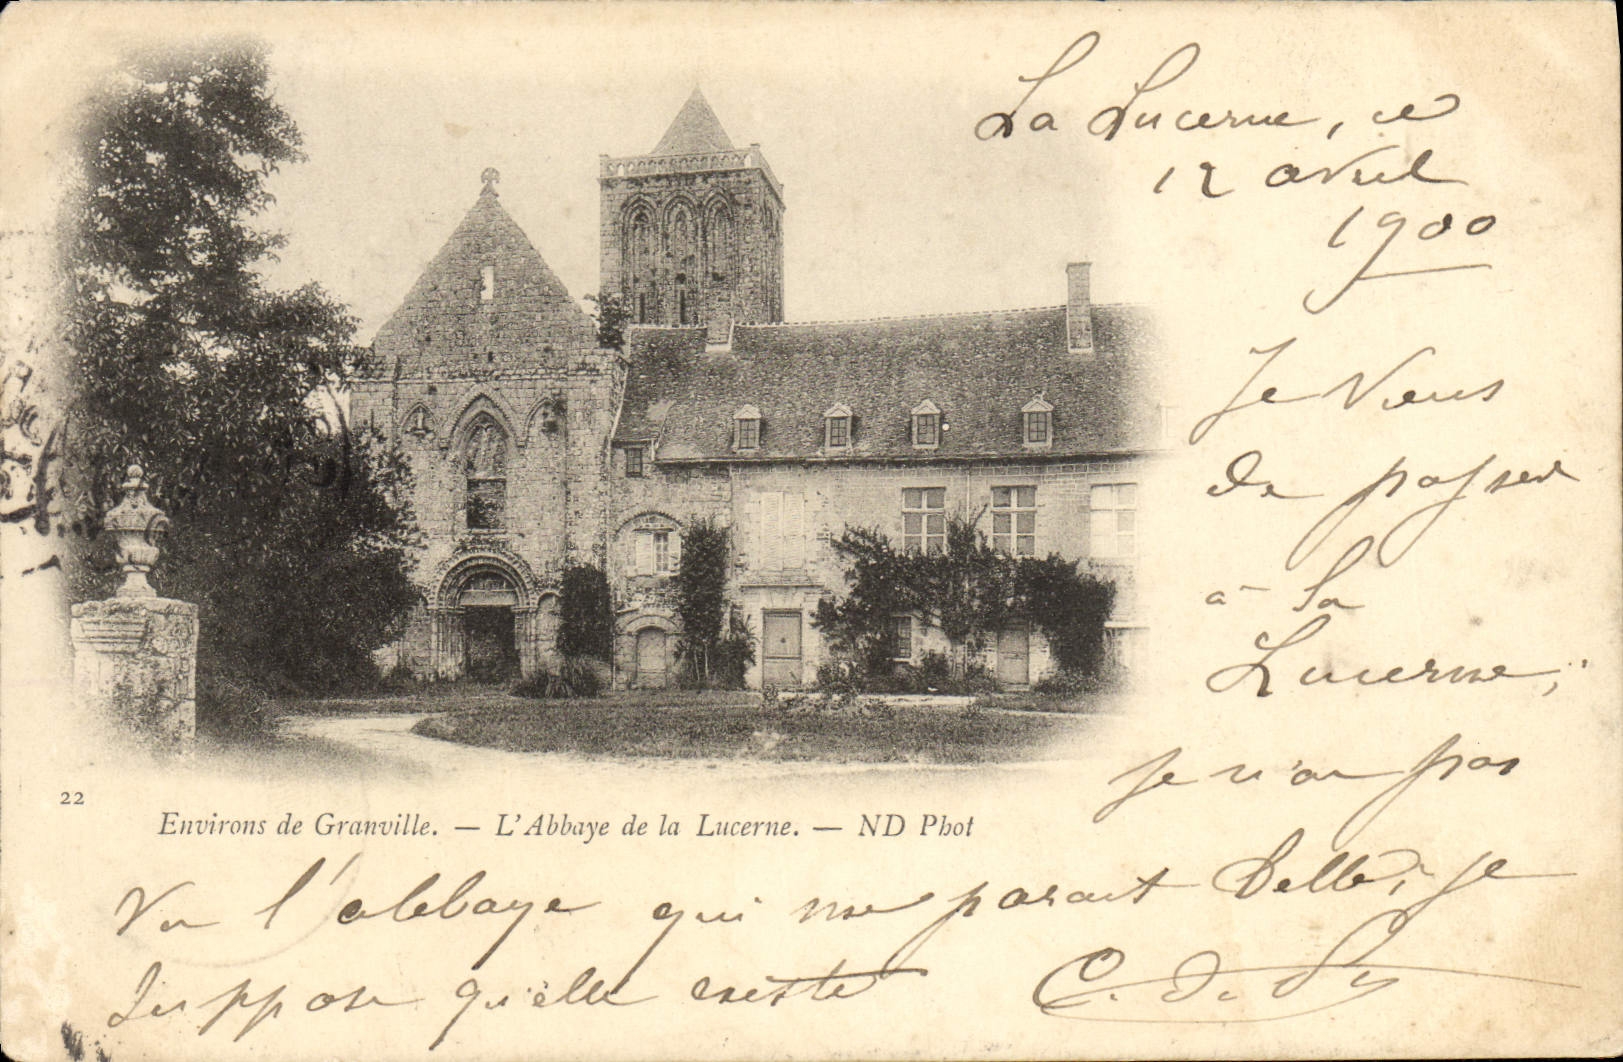 La Lucerne, ce
12 avril
1900
Je viens
de passer
à la
Lucerne;
je n'ai pas
22
Environs de Granville. — L'Abbaye de la Lucerne. — ND Phot
Vu l'abbaye qui me parait belle; je
suppose qu'elle existe
C. de